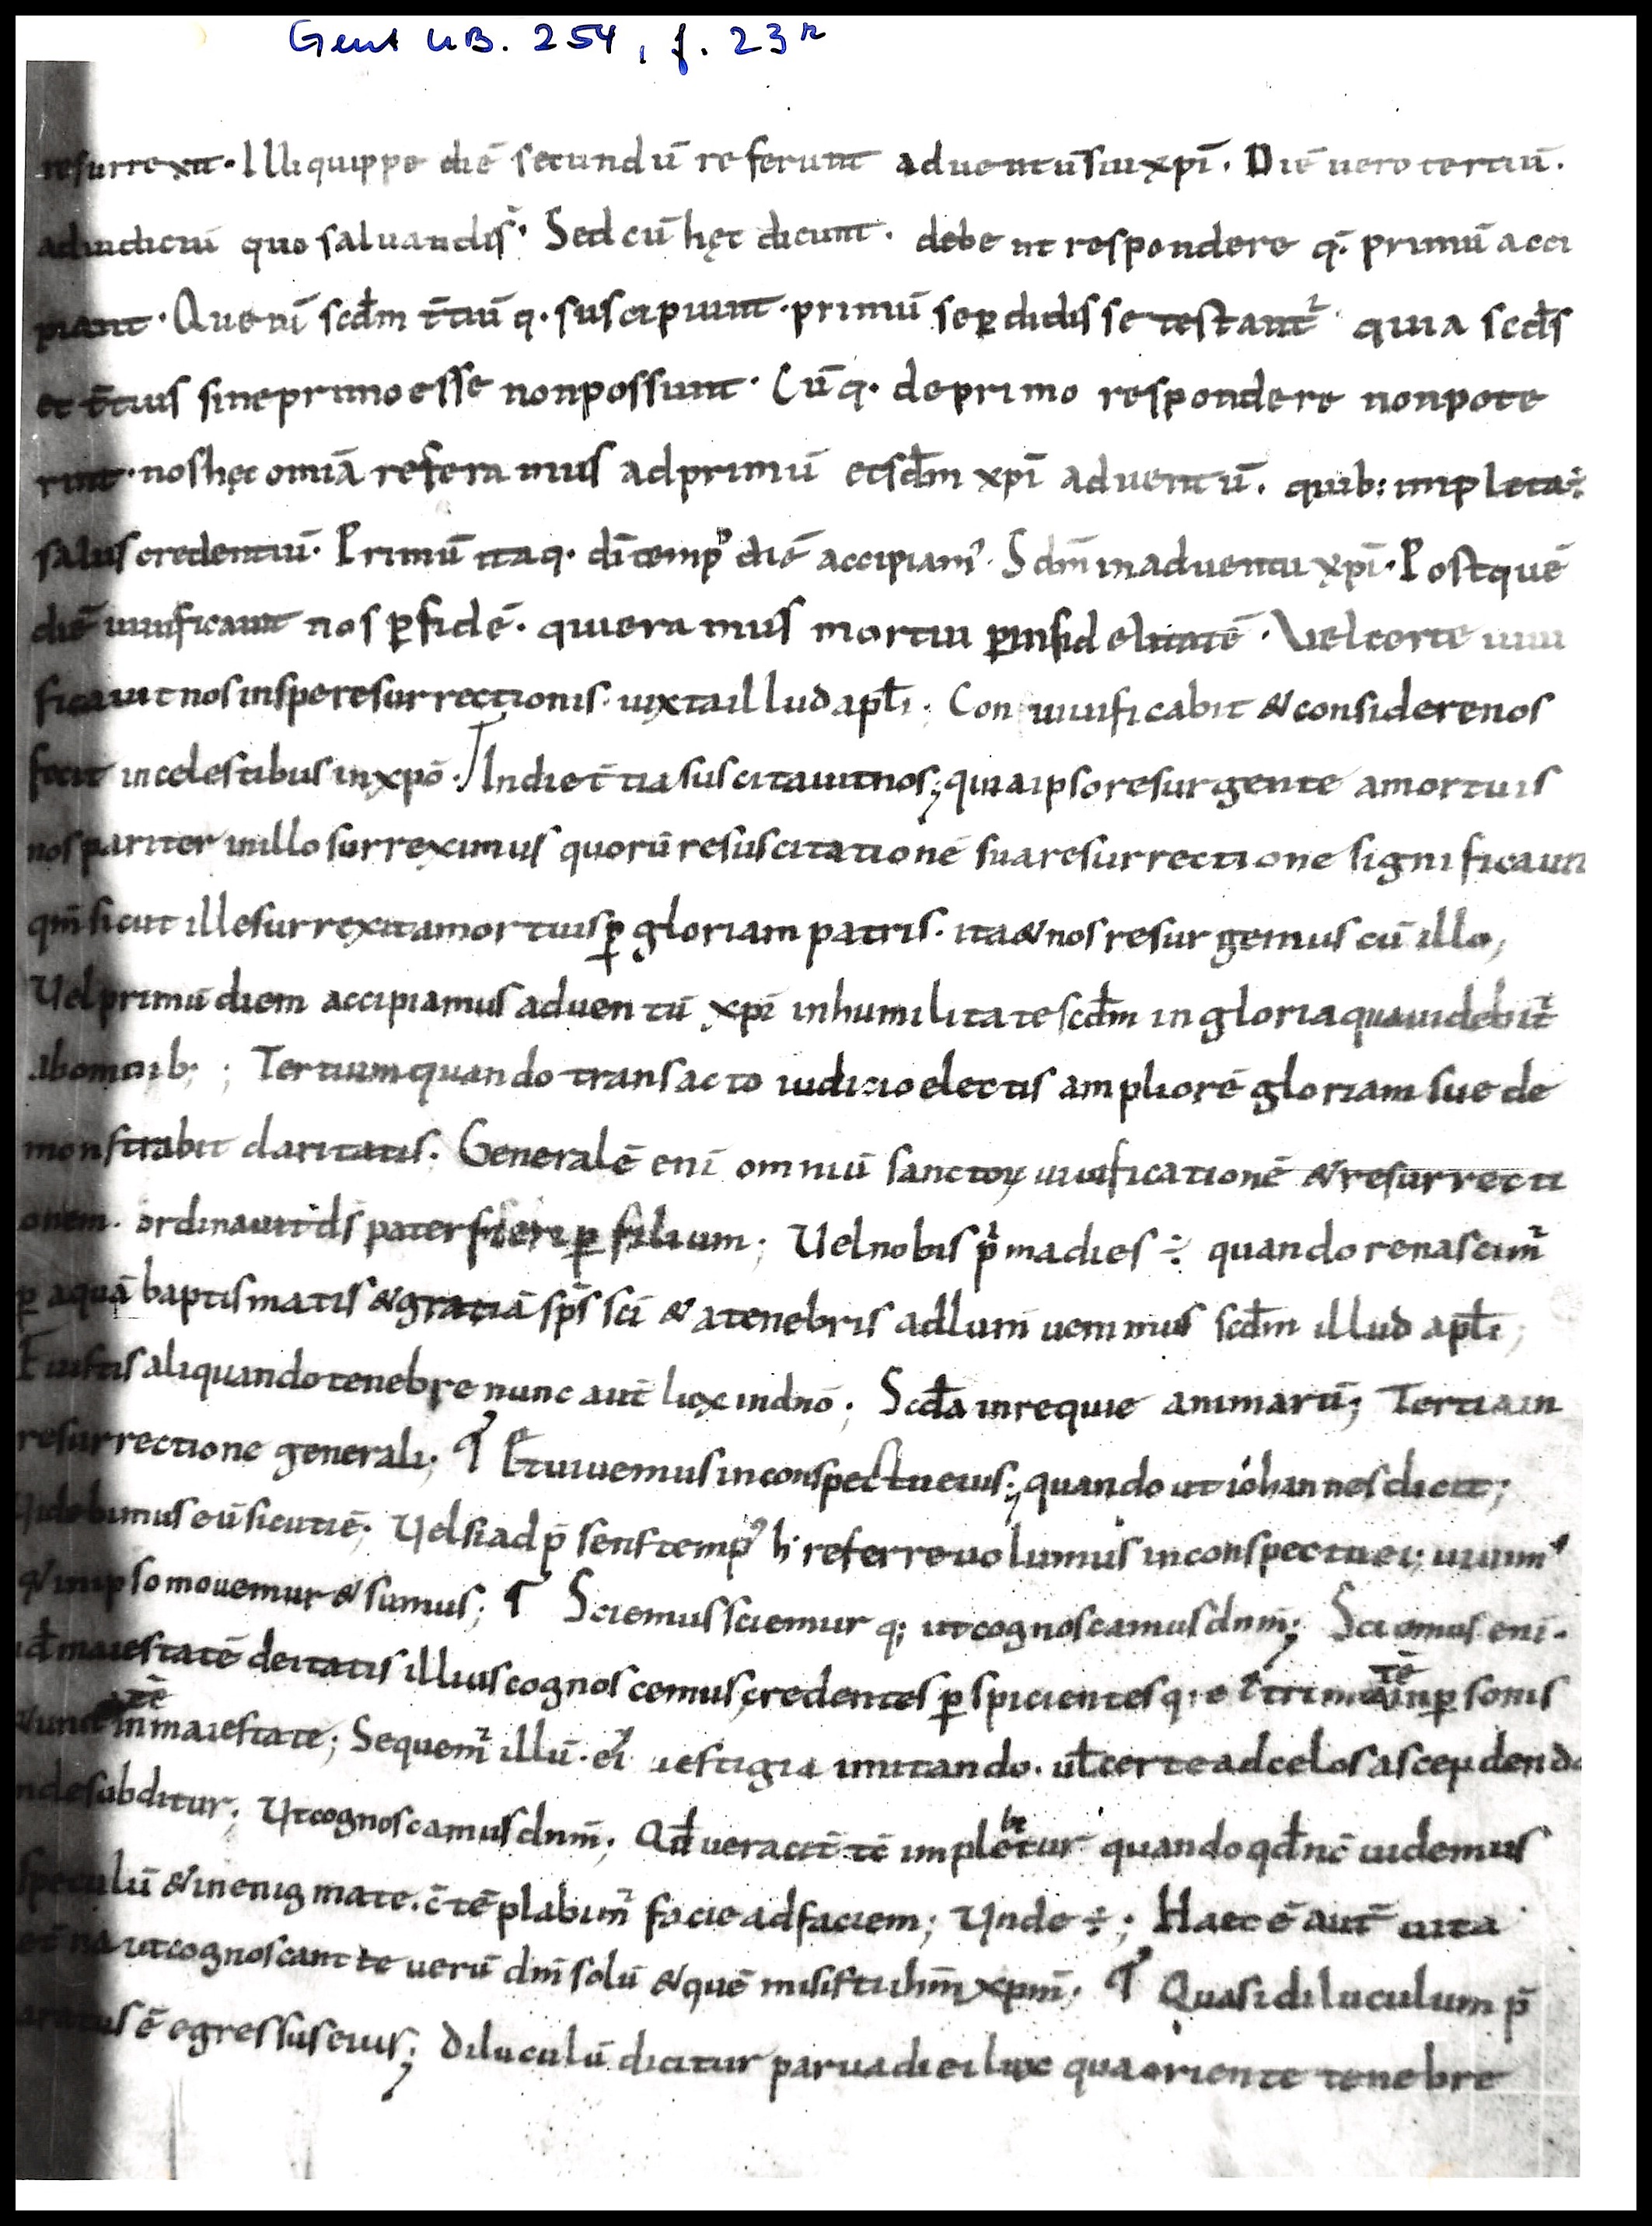 Gent UB. 254, f. 23r
resurrexit. Illi quippe diē secundū referunt aduentū sui xpi. Diē uero tertiū.
ad iudiciū quo saluandi s̄. Sed cū hęc dicunt. debent respondere q̄ primū acci
piant. Quē nī scd̄m t̄tiū q. suscipiunt. primū se ꝑdidisse testant̄ quia scd̄s
et t̄tius sine primo esse non possunt. Cūq. de primo respondere non pote
rint. nos hęc omīa referamus ad primū et sd̄m xpī aduentū. quib: impleta ÷
salus credentiū. Primū itaq. dī temp᾽ diē accipiam᾽. Sdm̄ in aduentu xpī. Post quē
diē uiuificauit nos ꝑ fidē. qui eramus mortui ꝑ infidelitatē. Vel certe uiui
ficauit nos in spe resurrectionis. iuxta illud apl̄i. Conuiuificabit & considere nos
fecit in celestibus in xpō. In die t̄tia suscitauit nos; quia ipso resurgente a mortuis
nos pariter in illo surreximus quorū resuscitationē sua resurrectione significauit
qm̄ sicut ille surrexit a mortuis ꝑ gloriam patris. ita & nos resurgemus cū illo,
Uel primū diem accipiamus aduentū xpī in humilitate scd̄m in gloria qua uidebit̄
ab omnib; ; Tertium quando transacto iudicio electis ampliorē gloriam sue de
monstrabit claritatis. Generalē enī omniū sanctoꝝ uiuificationē & resurrecti
onem. ordinauit ds̄ pater fieri ꝑ filium; Uel nobis p̄ma dies ÷ quando renascim̄
ꝑ aquā baptismatis & gratiā sp̄s sci & a tenebris ad lum̄ uenimus scd̄m illud apl̄i;
Fuistis aliquando tenebre nunc aut̄ lux in dnō; Scd̄a in requie animarū; Tertia in
resurrectione generali; ¶ Et uiuemus in conspectu eius; quando ut iohannes dicit;
Uidebimus eū sicuti ē; Uel si ad p̄sens temp᾽ h᾽ referre uolumus in conspectu ei; uiuim᾽
& in ipso mouemur & sumus; ¶ Sciemus sciemurq; ut cognoscamus dnm̄; Sciemus enī.
id̄ maiestatē deitatis illius cognoscemus, credentes ꝑspicientesq; e᾽ trinitatē in ꝑsonis
& unitatē in maiestate; Sequem̄ illū. ei᾽ uestigia imitando. ul̄ certe ad celos ascendendo
Unde subditur; Ut cognoscamus dnm̄; Qd̄ ueracit̄ tc̄ implebitur quando qd̄ nc̄ uidemus
speculū & in enigmate. c̄tēplabim̄ facie ad faciem; Unde ÷; Haec ē aut̄ uita
et̄na ut cognoscant te uerū dm̄ solū & quē misisti ihm̄ xpm̄; ¶ Quasi diluculum p̄
aratus ē egressus eius; Diluculū dicitur parua diei lux qua oriente tenebre